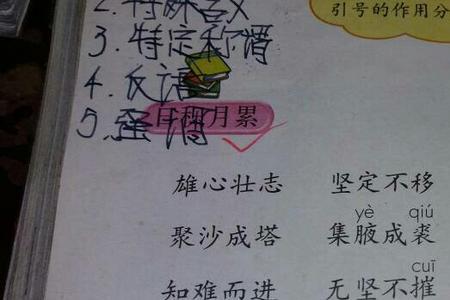 引号的作用分
2.特殊含义
3.特定称谓
4.反语
5.
日积月累
雄心壮志 坚定不移
yè qiú
聚沙成塔 集腋成裘
cuī
知难而进 无坚不摧